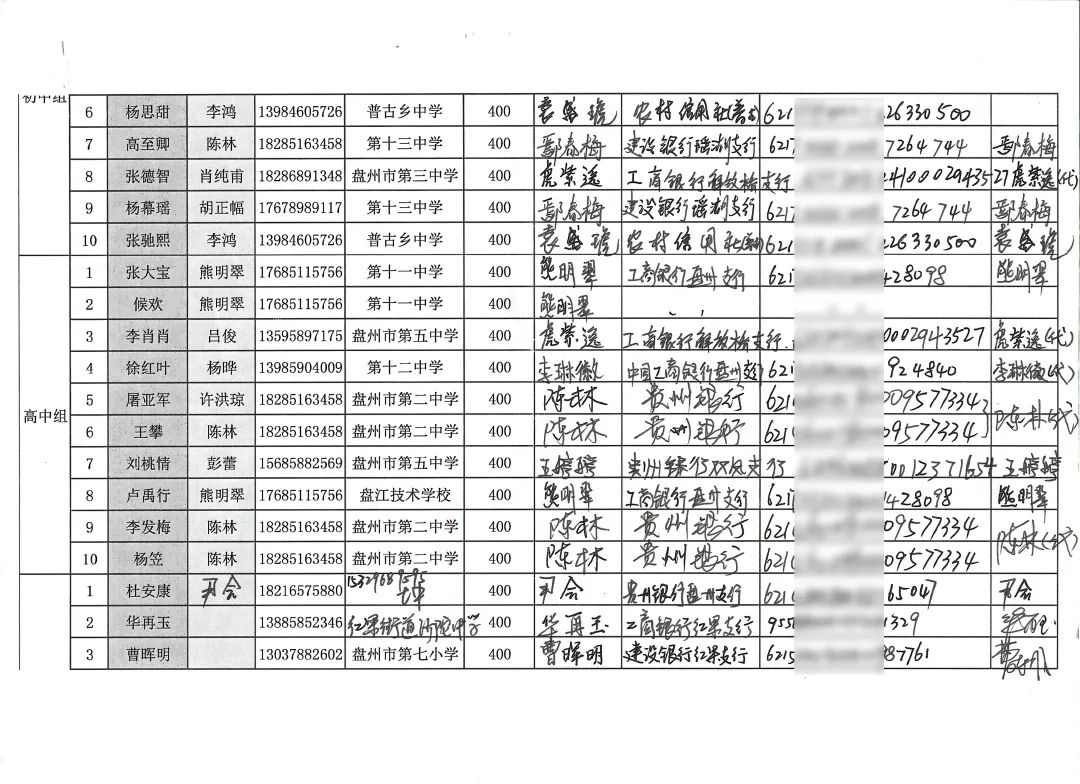 初中组
6 杨思甜 李鸿 13984605726 普古乡中学 400 袁盛瑰 农村信用社(普古) 621 26330500
7 高至卿 陈林 18285163458 第十三中学 400 鄢春梅 建设银行瑶湖支行 6217 7264744 鄢春梅
8 张德智 肖纯甫 18286891348 盘州市第三中学 400 虎紫遥 工商银行解放桥支行 27虎紫遥(代)
9 杨幕瑶 胡正幅 17678989117 第十三中学 400 鄢春梅 建设银行瑶湖支行 6217 7264744 鄢春梅
10 张驰熙 李鸿 13984605726 普古乡中学 400 袁盛瑰 农村信用社 621 26330500 袁盛瑰
1 张大宝 熊明翠 17685115756 第十一中学 400 熊明翠 工商银行盘州支行 621 428098 熊明翠
2 候欢 熊明翠 17685115756 第十一中学 400 熊明翠
3 李肖肖 吕俊 13595897175 盘州市第五中学 400 虎紫遥 工商银行解放桥支行 0002943527 虎紫遥(代)
4 徐红叶 杨晔 13985904009 第十二中学 400 李琳徽 中国工商银行盘州支行 621 924840 李琳徽(代)
高中组
5 屠亚军 许洪琼 18285163458 盘州市第二中学 400 陈林 贵州银行 621 009577334 陈林(代)
6 王攀 陈林 18285163458 盘州市第二中学 400 陈林 贵州银行 621 09577334
7 刘桃情 彭蕾 15685882569 盘州市第五中学 400 王婷婷 贵州银行双凤支行 0012371654 王婷婷
8 卢禹行 熊明翠 17685115756 盘江技术学校 400 熊明翠 工商银行盘州支行 621 428098 熊明翠
9 李发梅 陈林 18285163458 盘州市第二中学 400 陈林 贵州银行 621 09577334 陈林(代)
10 杨笠 陈林 18285163458 盘州市第二中学 400 陈林 贵州银行 621 09577334
1 杜安康 开会 18216575880 400 开会 贵州银行盘州支行 621 65047 开会
2 华再玉 13885852346 红果街道沙陀中学 400 华再玉 工商银行红果支行 955 1329
3 曹晖明 13037882602 盘州市第七小学 400 曹晖明 建设银行红果支行 6215 87761